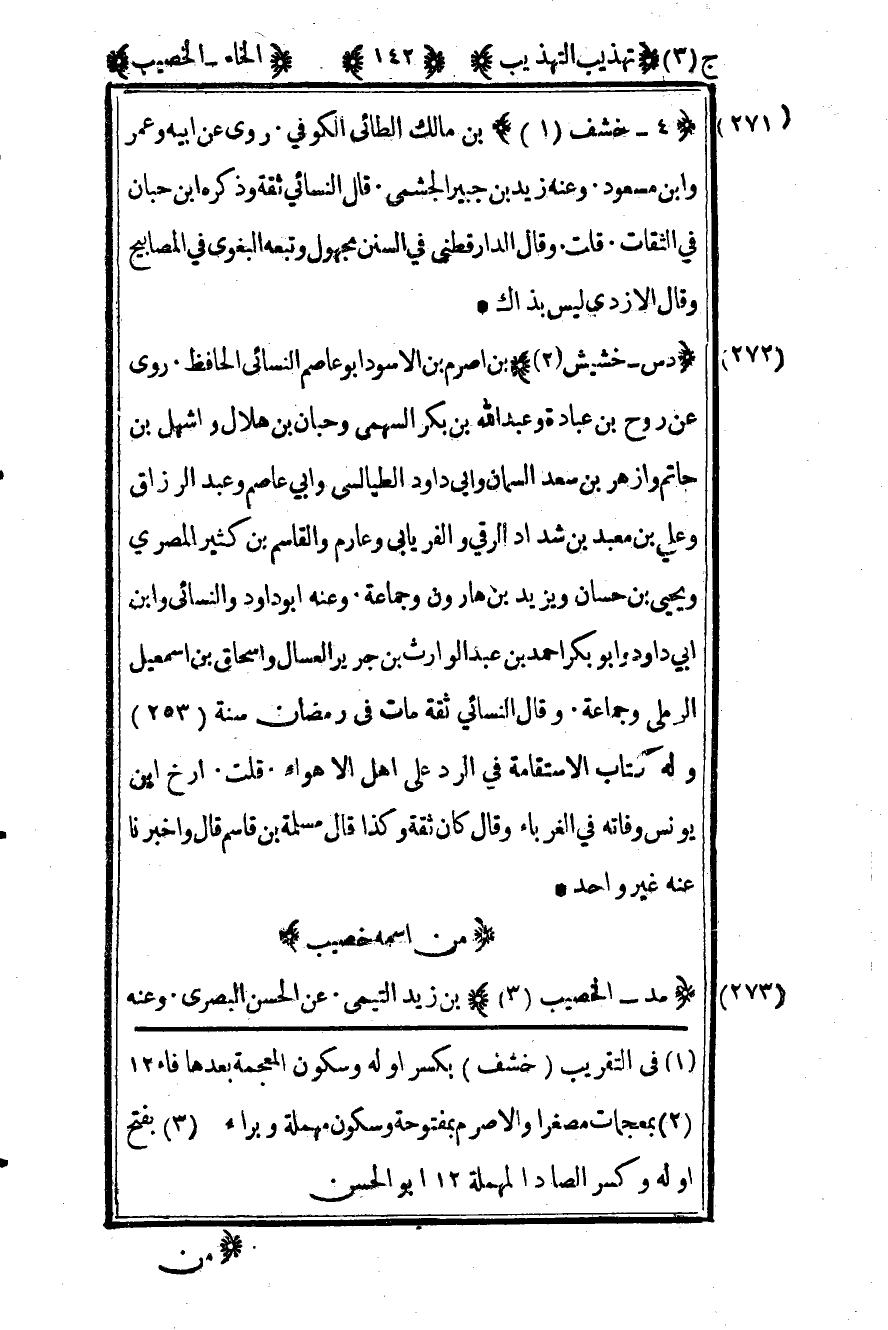 ج (٣) ﴿تهذيب التهذيب﴾ ﴿١٤٢﴾ ﴿الخاء ـ الخصيب﴾
(٢٧١) ﴿٤ ـ خشف (١)﴾ بن مالك الطائى الكوفي. روى عن ابيه وعمر
وابن مسعود. وعنه زيد بن جبير الجشمي. قال النسائي ثقة وذكره ابن حبان
في الثقات. قلت. وقال الدارقطني في السنن مجهول وتبعه البغوى في المصابيح
وقال الازدي ليس بذاك •
(٢٧٢) ﴿دس ـ خشيش (٢)﴾ بن اصرم بن الاسود ابو عاصم النسائى الحافظ. روى
عن روح بن عبادة وعبدالله بن بكر السهمي وحبان بن هلال و اشهل بن
حاتم وازهر بن سعد السمان وابى داود الطيالسى وابي عاصم وعبد الرزاق
وعلي بن معبد بن شداد الرقي و الفريابى وعارم والقاسم بن كثير المصري
ويحيى بن حسان ويزيد بن هارون وجماعة. وعنه ابوداود والنسائى وابن
ابي داود وابو بكر احمد بن عبدالوارث بن جرير العسال واسحاق بن اسمعيل
الرملى وجماعة. وقال النسائي ثقة مات فى رمضان سنة (٢٥٣)
وله كتاب الاستقامة في الرد على اهل الاهواء. قلت. ارخ ابن
يونس وفاته في الغرباء وقال كان ثقة وكذا قال مسلمة بن قاسم قال واخبرنا
عنه غير واحد •
﴿من اسمه خصيب﴾
(٢٧٣) ﴿مد ـ الخصيب (٣)﴾ بن زيد التيمى. عن الحسن البصرى. وعنه
(١) فى التقريب (خشف) بكسر اوله وسكون المعجمة بعدها فاء ١٢
(٢) بمعجمات مصغرا والاصرم بمفتوحة وسكون مهملة وبراء (٣) بفتح
اوله وكسر الصاد المهملة ١٢ ابو الحسن
﴿من